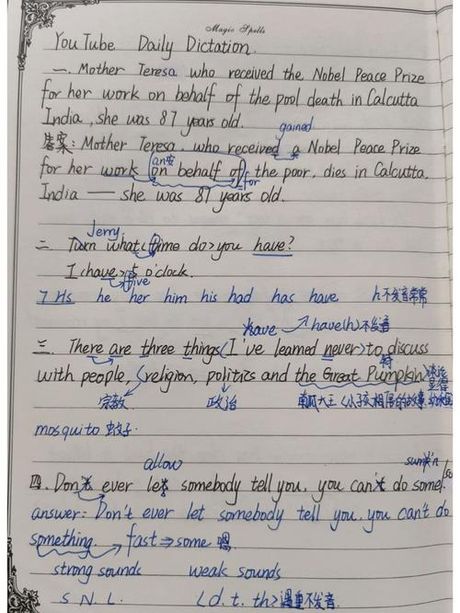 Magic Spells
YouTube Daily Dictation.
一. Mother Teresa who received the Nobel Peace Prize
for her work on behalf of the pool death in Calcutta
India, she was 87 years old.
gained
答案: Mother Teresa, who received a Nobel Peace Prize
for her work on behalf of the poor, dies in Calcutta.
for
India — she was 87 years old.
Jerry,
二. Turn what time do you have?
I have 5 o'clock.
five
7 Hs he her him his had has have h不发音常常
have → have(h)不发音
三. There are three things (I've learned never) to discuss
with people, (religion, politics and the Great Pumpkin
宗教 政治 南瓜大王
mosquito 蚊子.
allow sump'n
四. Don't ever let somebody tell you, you can't do some
answer: Don't ever let somebody tell you, you can't do
something. → fast ⇒ some 嗯
strong sounds weak sounds
S. N. L. L d. t. th > 遇重不发音.